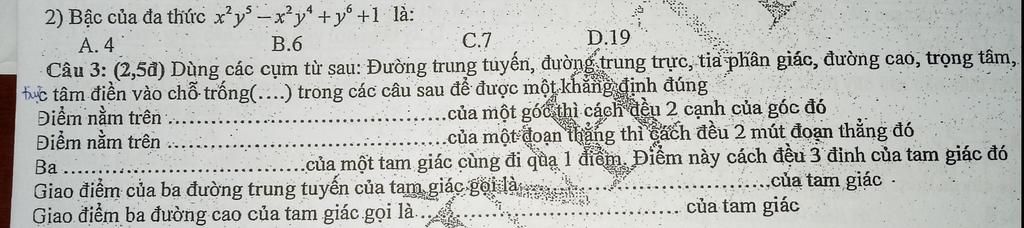 2) Bậc của đa thức x²y⁵ – x²y⁴ + y⁶ + 1 là:
A. 4 B.6 C.7 D.19
Câu 3: (2,5đ) Dùng các cụm từ sau: Đường trung tuyến, đường trung trực, tia phân giác, đường cao, trọng tâm,
trực tâm điền vào chỗ trống(....) trong các câu sau để được một khẳng định đúng
Điểm nằm trên ................................................của một góc thì cách đều 2 cạnh của góc đó
Điểm nằm trên ................................................của một đoạn thẳng thì cách đều 2 mút đoạn thẳng đó
Ba .........................................của một tam giác cùng đi qua 1 điểm. Điểm này cách đều 3 đỉnh của tam giác đó
Giao điểm của ba đường trung tuyến của tam giác gọi là..........................................của tam giác
Giao điểm ba đường cao của tam giác gọi là............................................ của tam giác